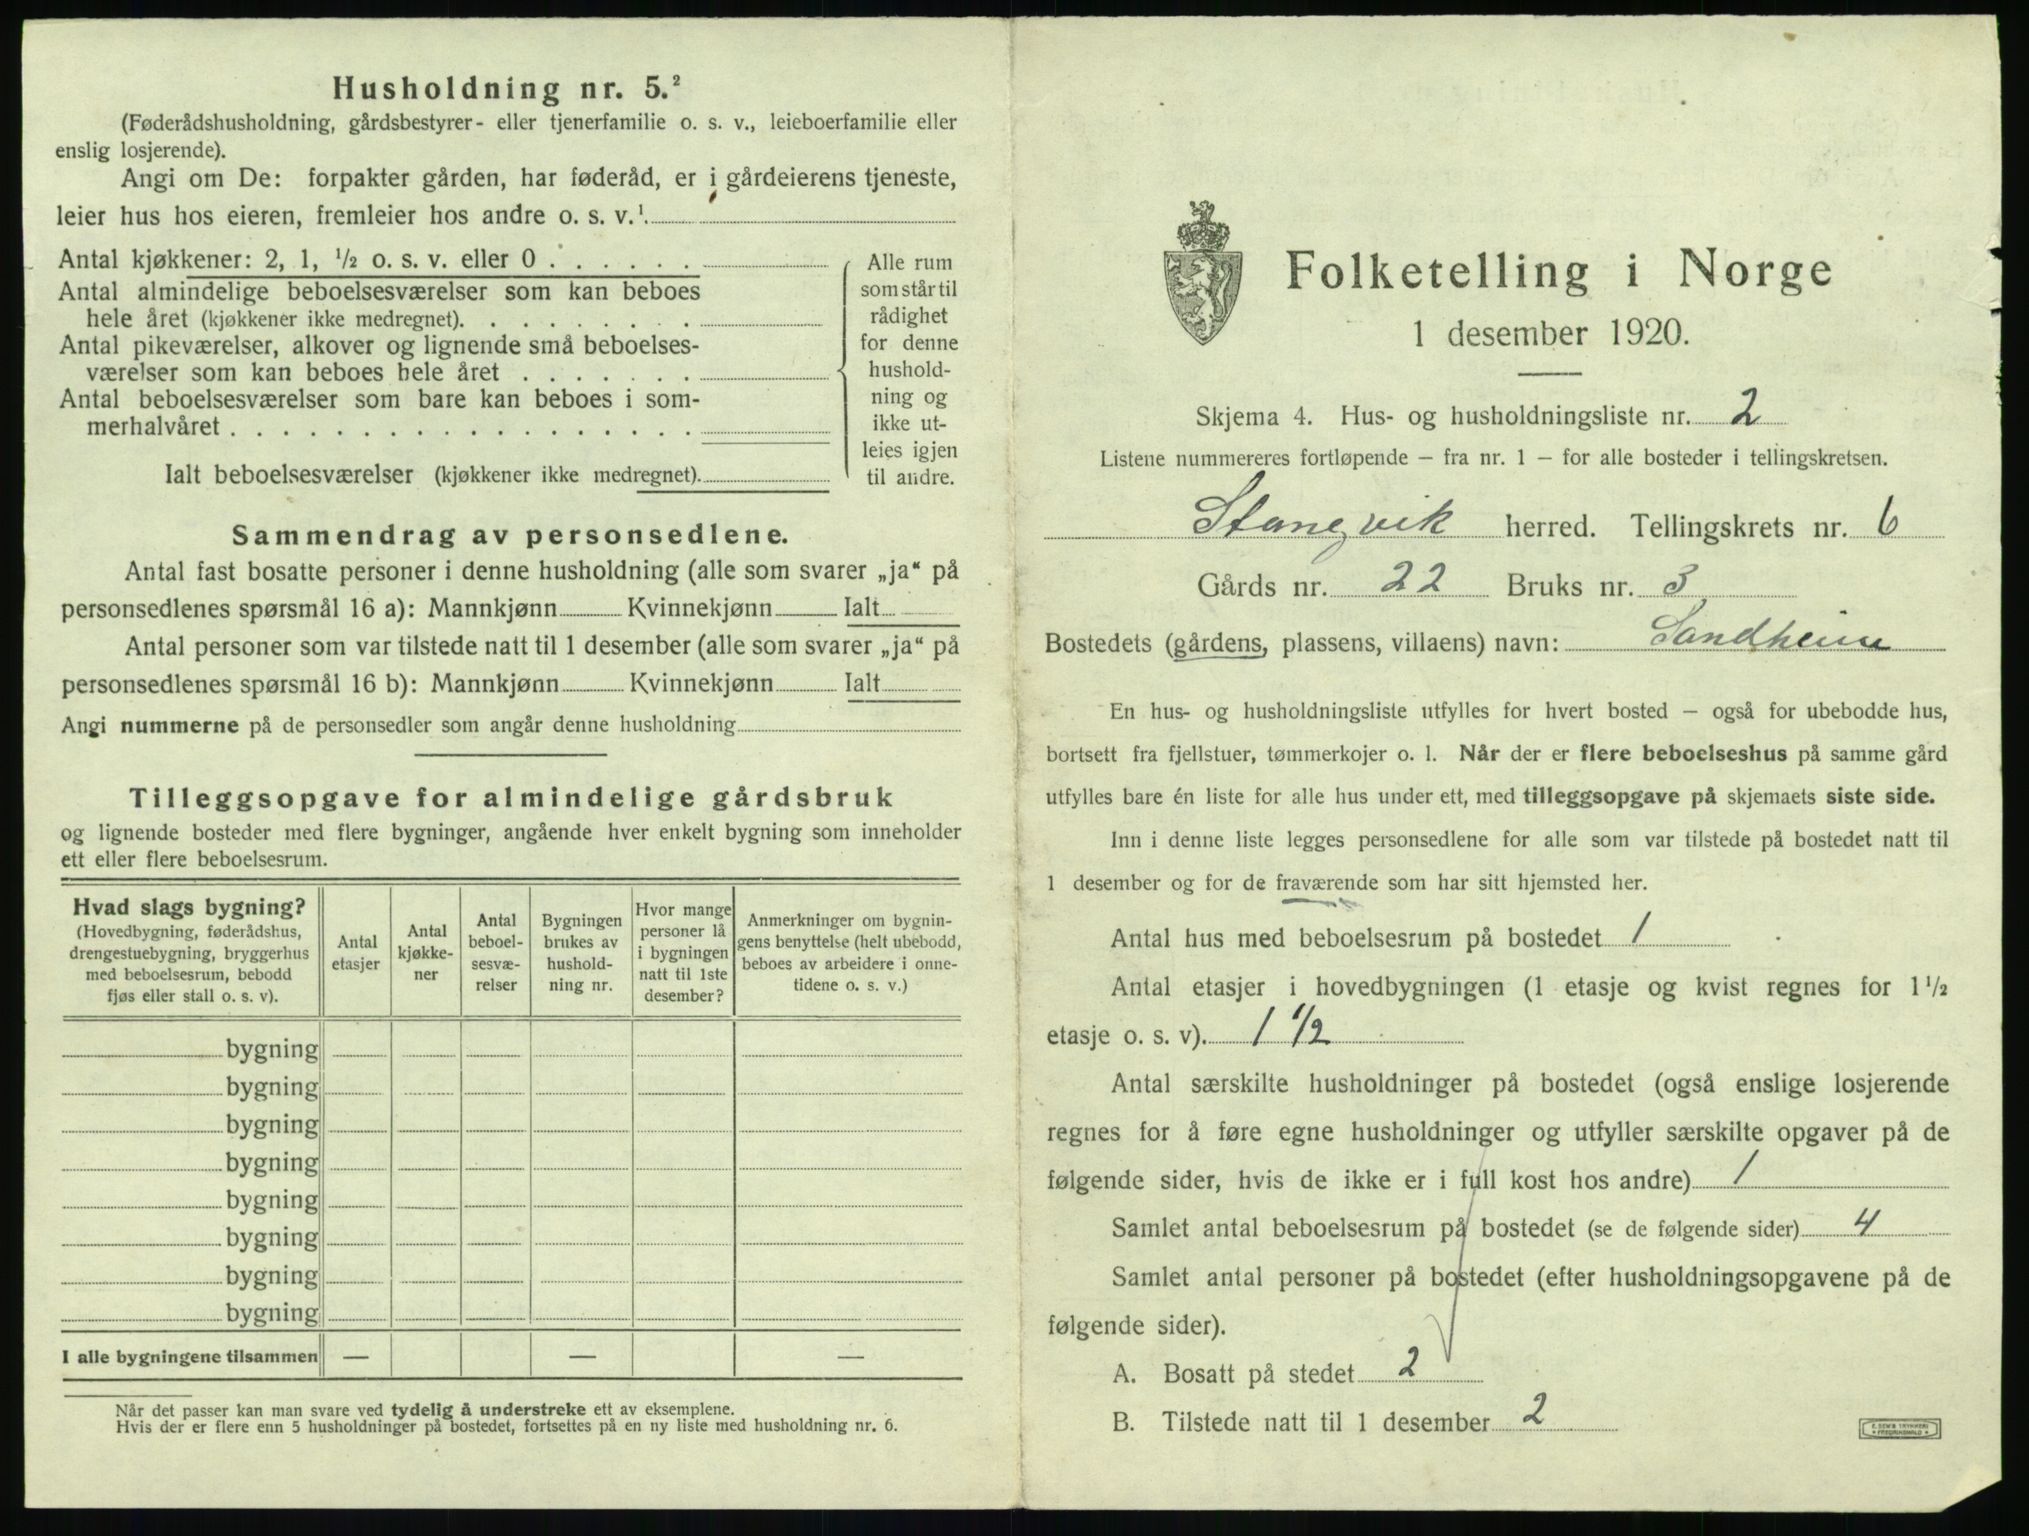 Husholdning nr. 5.²
(Føderådshusholdning, gårdsbestyrer- eller tjenerfamilie o. s. v., leieboerfamilie eller
enslig losjerende).
Angi om De: forpakter gården, har føderåd, er i gårdeierens tjeneste,
leier hus hos eieren, fremleier hos andre o. s. v.¹
Antal kjøkkener: 2, 1, ½ o. s. v. eller 0 . . . . . .
Antal almindelige beboelsesværelser som kan beboes
hele året (kjøkkener ikke medregnet). . . . . . . . .
Antal pikeværelser, alkover og lignende små beboelses-
værelser som kan beboes hele året . . . . . . .
Antal beboelsesværelser som bare kan beboes i som-
merhalvåret . . . . . . . . . . . . . . . . . .
Ialt beboelsesværelser (kjøkkener ikke medregnet).
Alle rum
som står til
rådighet
for denne
hushold-
ning og
ikke ut-
leies igjen
til andre.
Sammendrag av personsedlene.
Antal fast bosatte personer i denne husholdning (alle som svarer „ja“ på
personsedlenes spørsmål 16 a): Mannkjønn Kvinnekjønn Ialt
Antal personer som var tilstede natt til 1 desember (alle som svarer „ja“ på
personsedlenes spørsmål 16 b): Mannkjønn Kvinnekjønn Ialt
Angi nummerne på de personsedler som angår denne husholdning
Tilleggsopgave for almindelige gårdsbruk
og lignende bosteder med flere bygninger, angående hver enkelt bygning som inneholder
ett eller flere beboelsesrum.
Hvad slags bygning?
(Hovedbygning, føderådshus,
drengestuebygning, bryggerhus
med beboelsesrum, bebodd
fjøs eller stall o. s. v).
Antal
etasjer
Antal
kjøkke-
ner
Antal
beboel-
sesvæ-
relser
Bygningen
brukes av
hushold-
ning nr.
Hvor mange
personer lå
i bygningen
natt til 1ste
desember?
Anmerkninger om bygnin-
gens benyttelse (helt ubebodd,
beboes av arbeidere i onne-
tidene o. s. v.)
bygning
bygning
bygning
bygning
bygning
bygning
bygning
bygning
I alle bygningene tilsammen — — —
Når det passer kan man svare ved tydelig å understreke ett av eksemplene.
Hvis der er flere enn 5 husholdninger på bostedet, fortsettes på en ny liste med husholdning nr. 6.
Folketelling i Norge
1 desember 1920.
Skjema 4. Hus- og husholdningsliste nr. 2
Listene nummereres fortløpende – fra nr. 1 – for alle bosteder i tellingskretsen.
Stangvik herred. Tellingskrets nr. 6
Gårds nr. 22 Bruks nr. 3
Bostedets (gårdens, plassens, villaens) navn: Sandheim
En hus- og husholdningsliste utfylles for hvert bosted – også for ubebodde hus,
bortsett fra fjellstuer, tømmerkojer o. l. Når der er flere beboelseshus på samme gård
utfylles bare én liste for alle hus under ett, med tilleggsopgave på skjemaets siste side.
Inn i denne liste legges personsedlene for alle som var tilstede på bostedet natt til
1 desember og for de fraværende som har sitt hjemsted her.
Antal hus med beboelsesrum på bostedet 1
Antal etasjer i hovedbygningen (1 etasje og kvist regnes for 1½
etasje o. s. v). 1 1/2
Antal særskilte husholdninger på bostedet (også enslige losjerende
regnes for å føre egne husholdninger og utfyller særskilte opgaver på de
følgende sider, hvis de ikke er i full kost hos andre) 1
Samlet antal beboelsesrum på bostedet (se de følgende sider) 4
Samlet antal personer på bostedet (efter husholdningsopgavene på de
følgende sider).
A. Bosatt på stedet 2
B. Tilstede natt til 1 desember 2